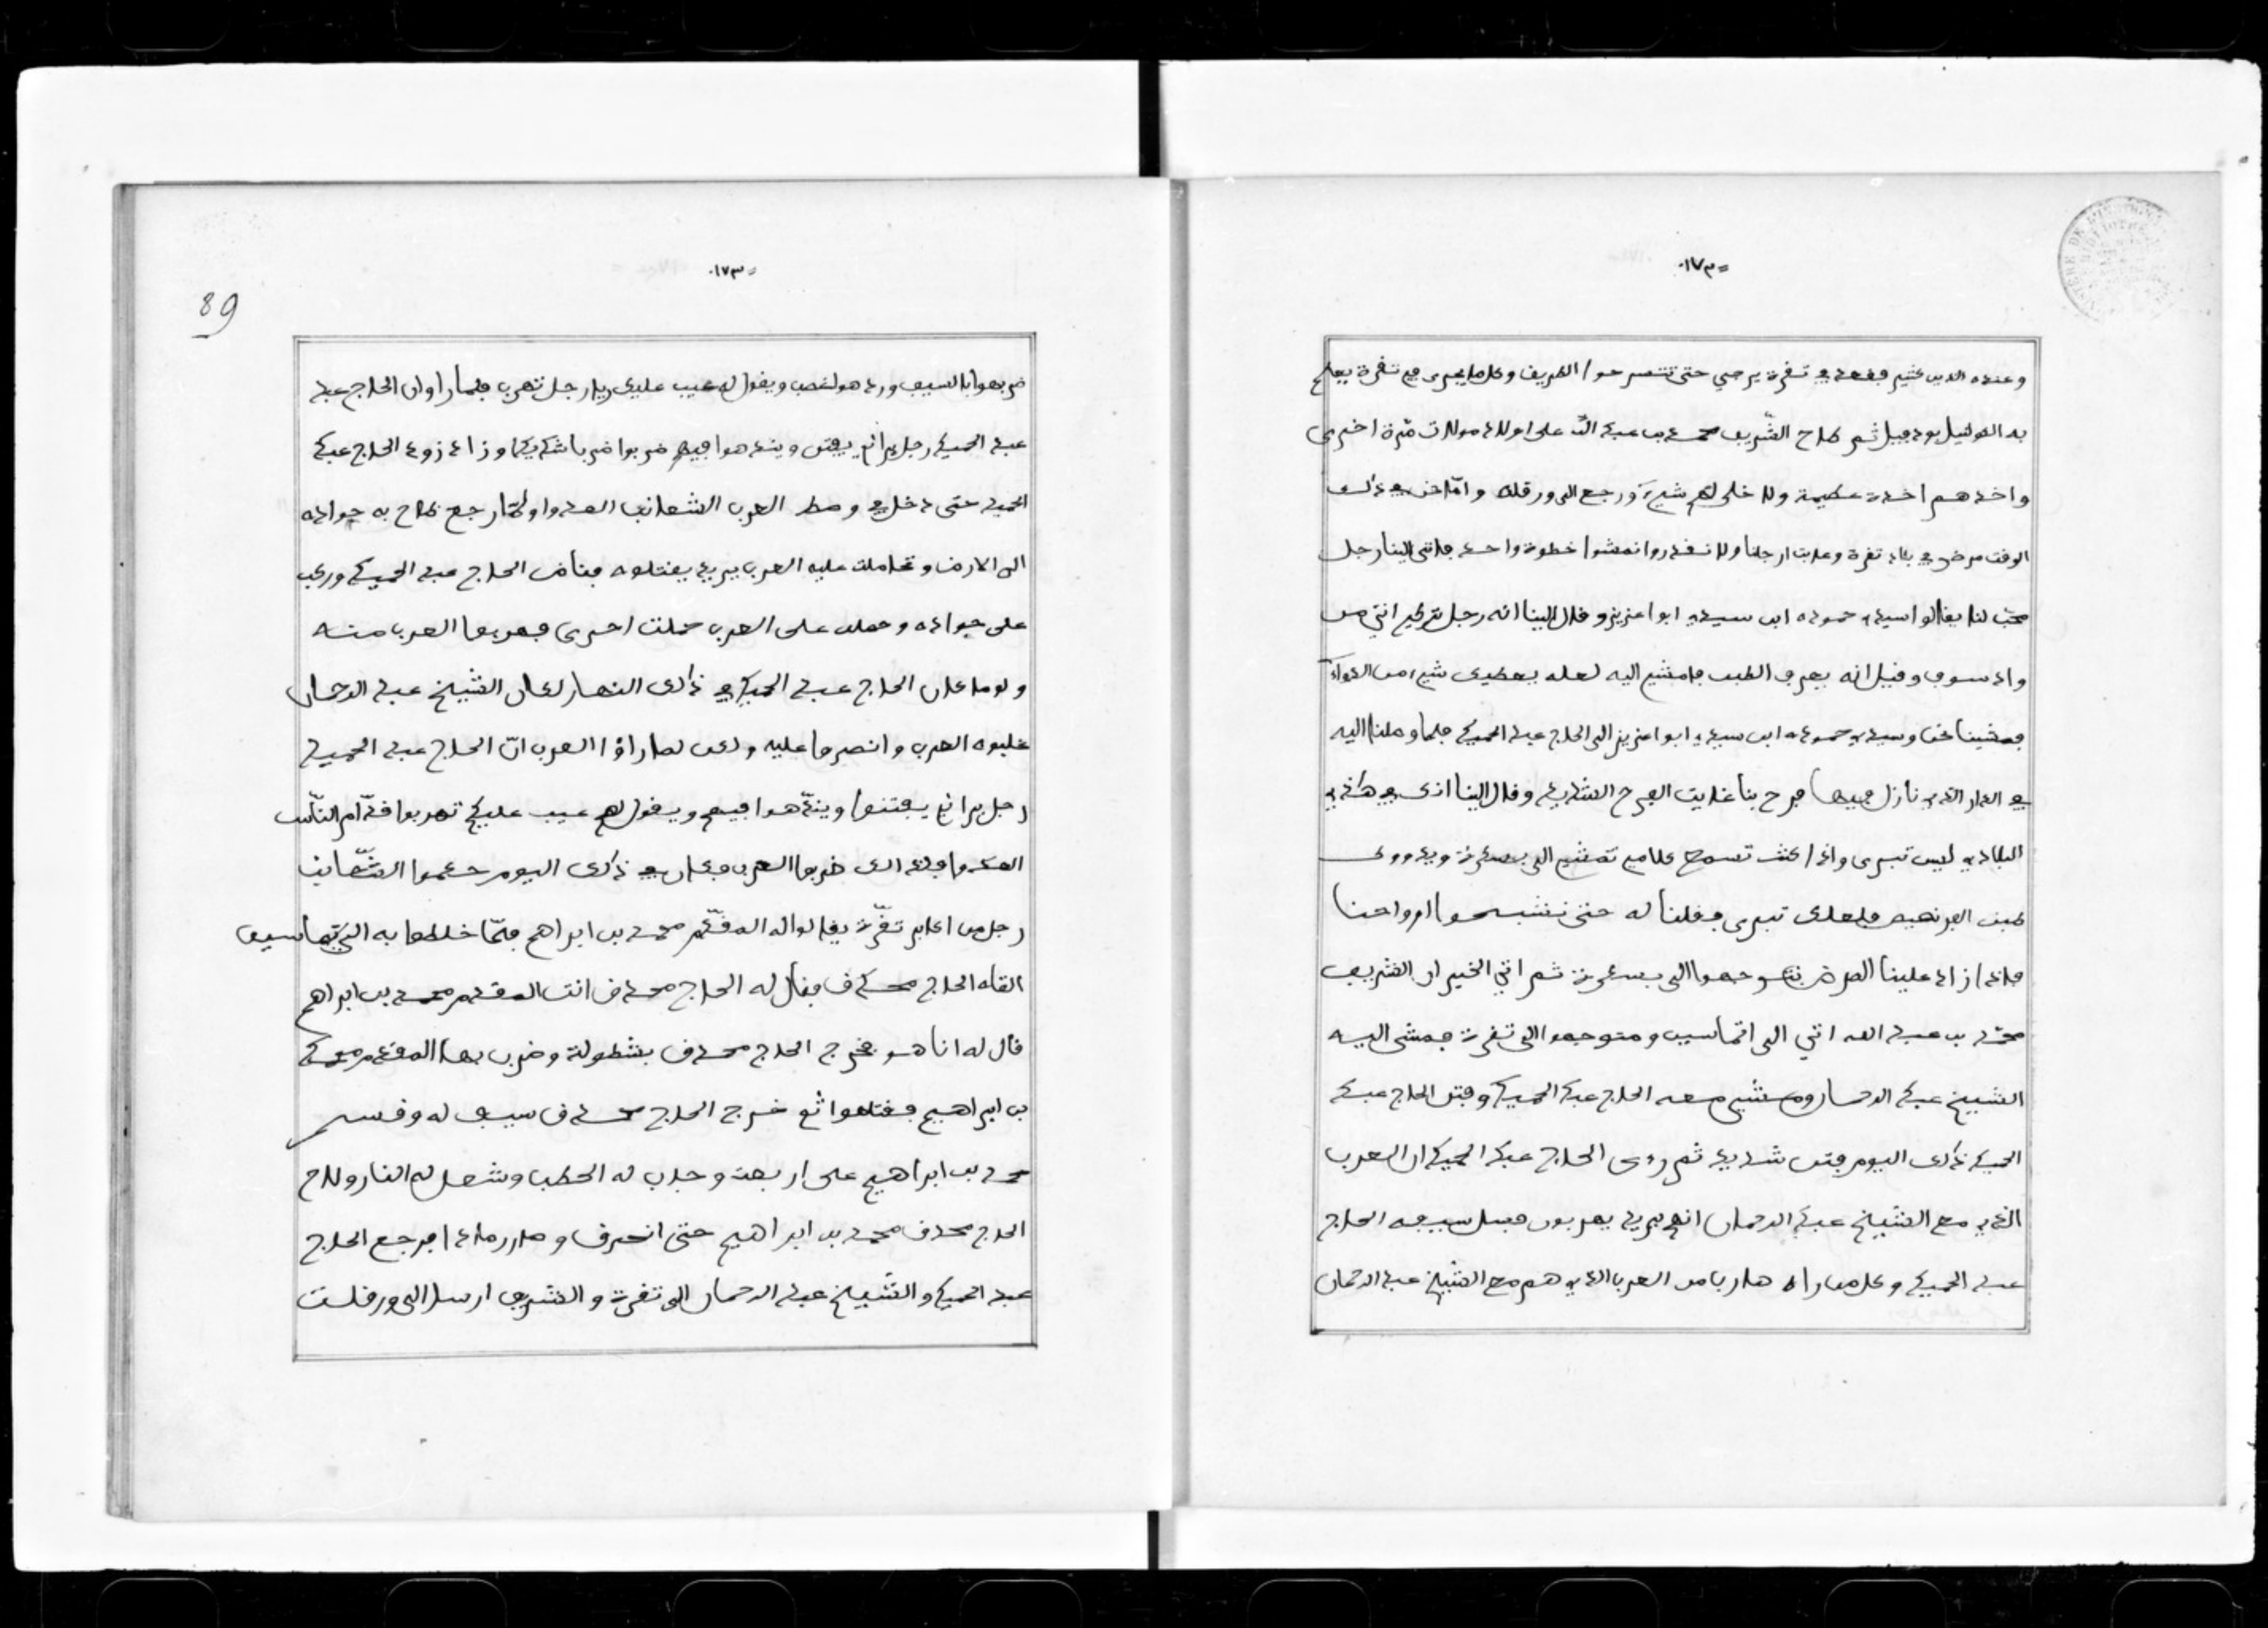 =١٧٣٠
وعنده الدين كثير فقعد في تقرت يرجي حتى تتسرحوا الطريق وكل ما يجرى في تقرت يعلم
به القولنيل بوه فبيل ثم طاح الشريف محمد بن عبد الله على اولاد مولات مرة اخرى
واخدهم اخدة عظيمة ولا خلى لهم شيء ورجع الى ورقلة وامّا نحن في ذلك
الوقت مرض في بلاد تقرت وعابت ارجلنا ولا نقدروا نمشوا خطوة واحدة فاتى الينا رجل
محب لنا يقالوا سيدي حموده ابن سيدي ابوا عزيز وقال الينا انه رجل تركي اتي من
واد سوف وقيل انه يعرف الطب فامشي اليه لعله يعطيك شيء من الدواء
فمشينا نحن وسيدي حموده ابن سيدي ابوا عزيز الى الحاج عبد الحميد فلما وصلنا اليه
في الدار الذي نازل فيها فرح بنا غايت الفرح الشديد وقال الينا انك في هذي
البلاد ليس تبرى واذا كنت تسمح كلامي تمشي الى بسكرة ويدووك
طبب الفرنصيص فلعلك تبرى فقلنا له حتى نشبحوا ارواحنا
فاذا زاد علينا المرض نتوجهوا الى بسكرة ثم اتي الخير ان الشريف
محمد بن عبد الله اتي الى اتماسين ومتوجهوا الى تقرت فمشى اليه
الشيخ عبد الرحمان ومشي معه الحاج عبد الحميد وفتن الحاج عبد
الحميد ذلك اليوم فتن شديد ثم روى الحاج عبد الحميد ان العرب
الذي مع الشيخ عبد الرحمان انهم يريد يهربون فسل سيفه الحاج
عبد الحميد وكل من راه هاربا من العرب الذي هم مع الشيخ عبد الرحمان
=١٧٣٠
89
ضربهوا بالسيف ورده هو لغصب ويقول له عيب عليك يا رجل تهرب فلما راوان الحاج عبد
عبد الحميد رجل براني يفتن وينده هوا فيهم ضربوا ضربا شديدا وزاد زود الحاج عبد
الحميد حتى دخل في وسط العرب الشعانب العدوا ولمّا رجع طاح به جواده
الى الارض وتحاملت عليه العرب يريد يقتلوه فناض الحاج عبد الحميد وركب
على جواده وحمل على العرب حملت اخرى فهربوا العرب منه
ولو ما كان الحاج عبد الحميد في ذلك النهار لكان الشيخ عبد الرحمان
غلبوه العرب وانصرفا عليه ولكن لما راوا العرب انّ الحاج عبد الحميد
رجل براني يفتنوا وينده هوا فيهم ويقول لهم عيب عليكم تهربوا قدّام النّاس
العدوا فلذالك ضربوا العرب وكان في ذلك اليوم حكموا الشعانب
رجل من اكابر تقّرت يقالوا له المقدّم محمد بن ابراهم فلمّا خلطوا به الى تماسين
القاه الحاج محدف فقال له الحاج محدف انت المقدم محمد بن ابراهم
قال له انا هو فخرج الحاج محدف بشطولة وضرب بها المقدم محمد
بن ابراهيم فقتلهوا ثم خرج الحاج محدف سيف له وقسم
محمد بن ابراهيم على اربعة وجلاب له الحطب وشعل له النار ولاح
الحاج محدف محمد بن ابراهيم حتى انحرق وصار رمادا فرجع الحاج
عبد الحميد والشيخ عبد الرحمان الى تقرت والشريف ارسل الى ورقلت